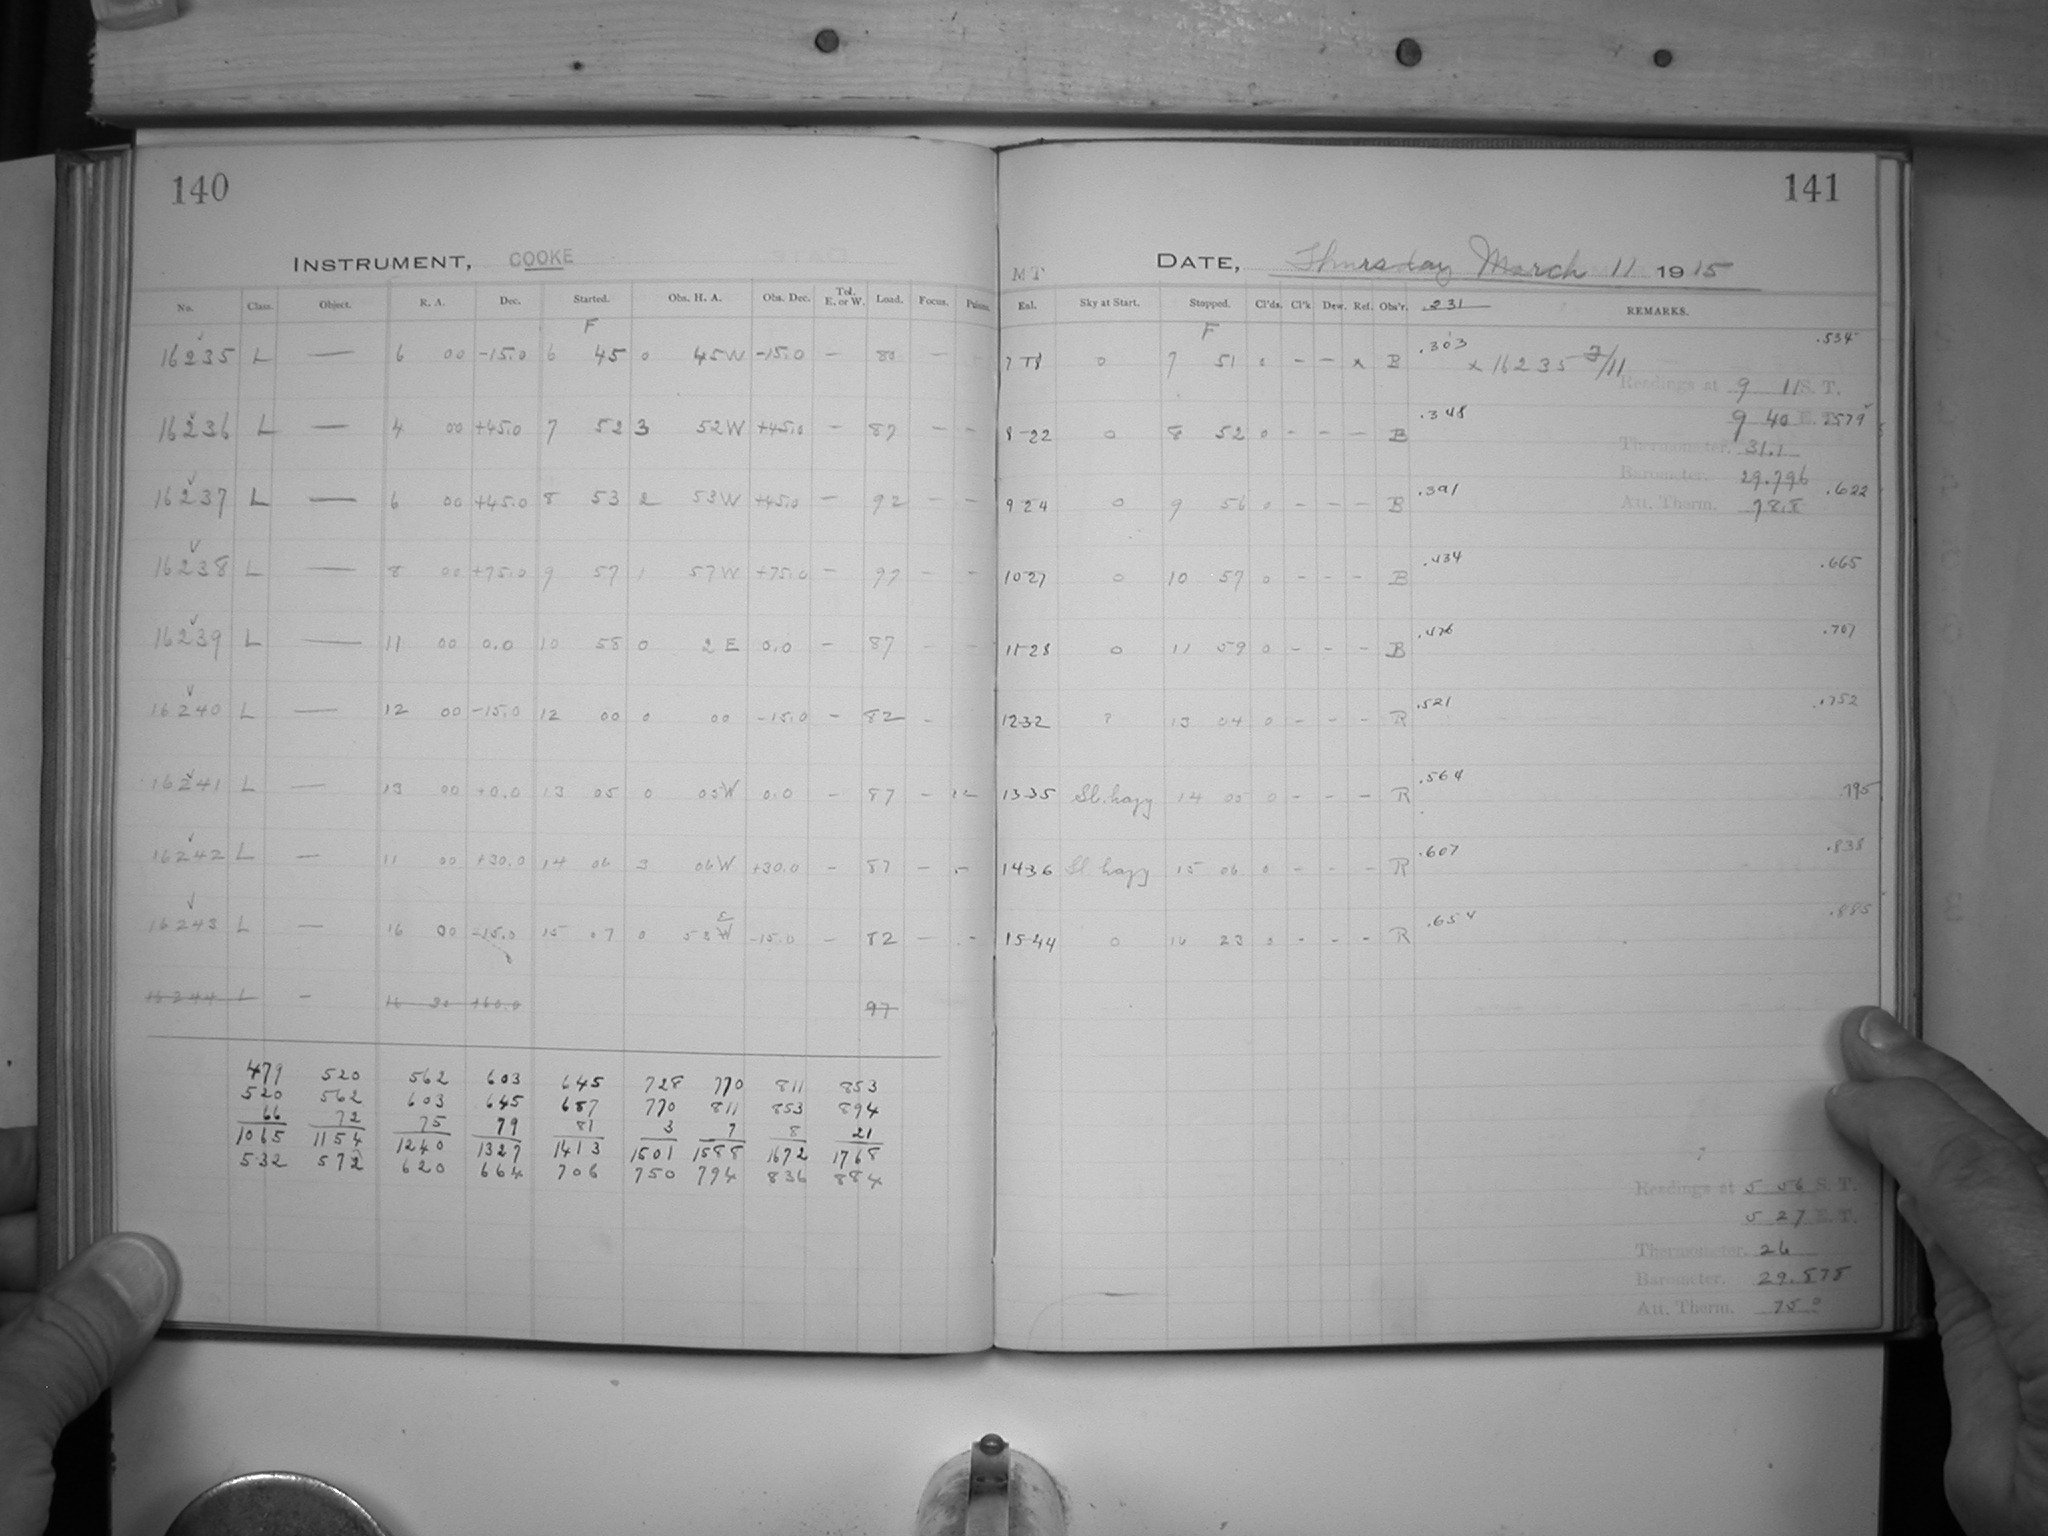 140
INSTRUMENT, COOKE
No. Class. Object. R. A. Dec. Started. Obs. H. A. Obs. Dec. Tel. E. or W. Load. Focus.
F
16235 L — 6 00 -15.0 6 45 0 45W -15.0 — 80 —
16236 L — 4 00 +45.0 7 52 3 52W +45.0 — 87 — —
16237 L — 6 00 +45.0 8 53 2 53W +45.0 — 92 — —
16238 L — 8 00 +75.0 9 57 1 57W +75.0 — 97 — —
16239 L — 11 00 0.0 10 58 0 2 E 0.0 — 87 — —
16240 L — 12 00 -15.0 12 00 0 00 -15.0 — 82 —
16241 L — 13 00 +0.0 13 05 0 05W 0.0 — 87 —
16242 L — 11 00 +30.0 14 06 3 06W +30.0 — 87 — —
16243 L — 16 00 -15.0 15 07 0 53 -15.0 — 82 — —
16244 L — 16 30 +60.0 97
479 520 562 603 645 728 770 811 853
520 562 603 645 687 770 811 853 894
66 72 75 79 81 3 7 8 21
1065 1154 1240 1327 1413 1501 1588 1672 1768
532 572 620 664 706 750 794 836 884
141
MT DATE, Thursday March 11 1915
Exl. Sky at Start. Stopped. Cl'ds. Cl'k Dew. Ref. Obs'r. 231 REMARKS.
F
7 18 0 7 51 0 — — x B .303 x 16235 3/11 .534
Readings at 9 11 S. T.
9 40 E. T. .579
8-22 0 8 52 0 — — — B .348
Thermometer. 31.1
Barometer. 29.796
9 24 0 9 56 0 — — — B .391 .622
Att. Therm. 78.5
10 27 0 10 57 0 — — — B .434 .665
11-28 0 11 59 0 — — — B .476 .707
12-32 ? 13 04 0 — — — R .521 .752
13-35 Sl. hazy 14 05 0 — — — R .564 .795
14-36 Sl hazy 15 06 0 — — — R .607 .838
15-44 0 16 23 0 — — — R .654 .885
Readings at 5 56 S. T.
5 27 E. T.
Thermometer. 26
Barometer. 29.575
Att. Therm. 75°